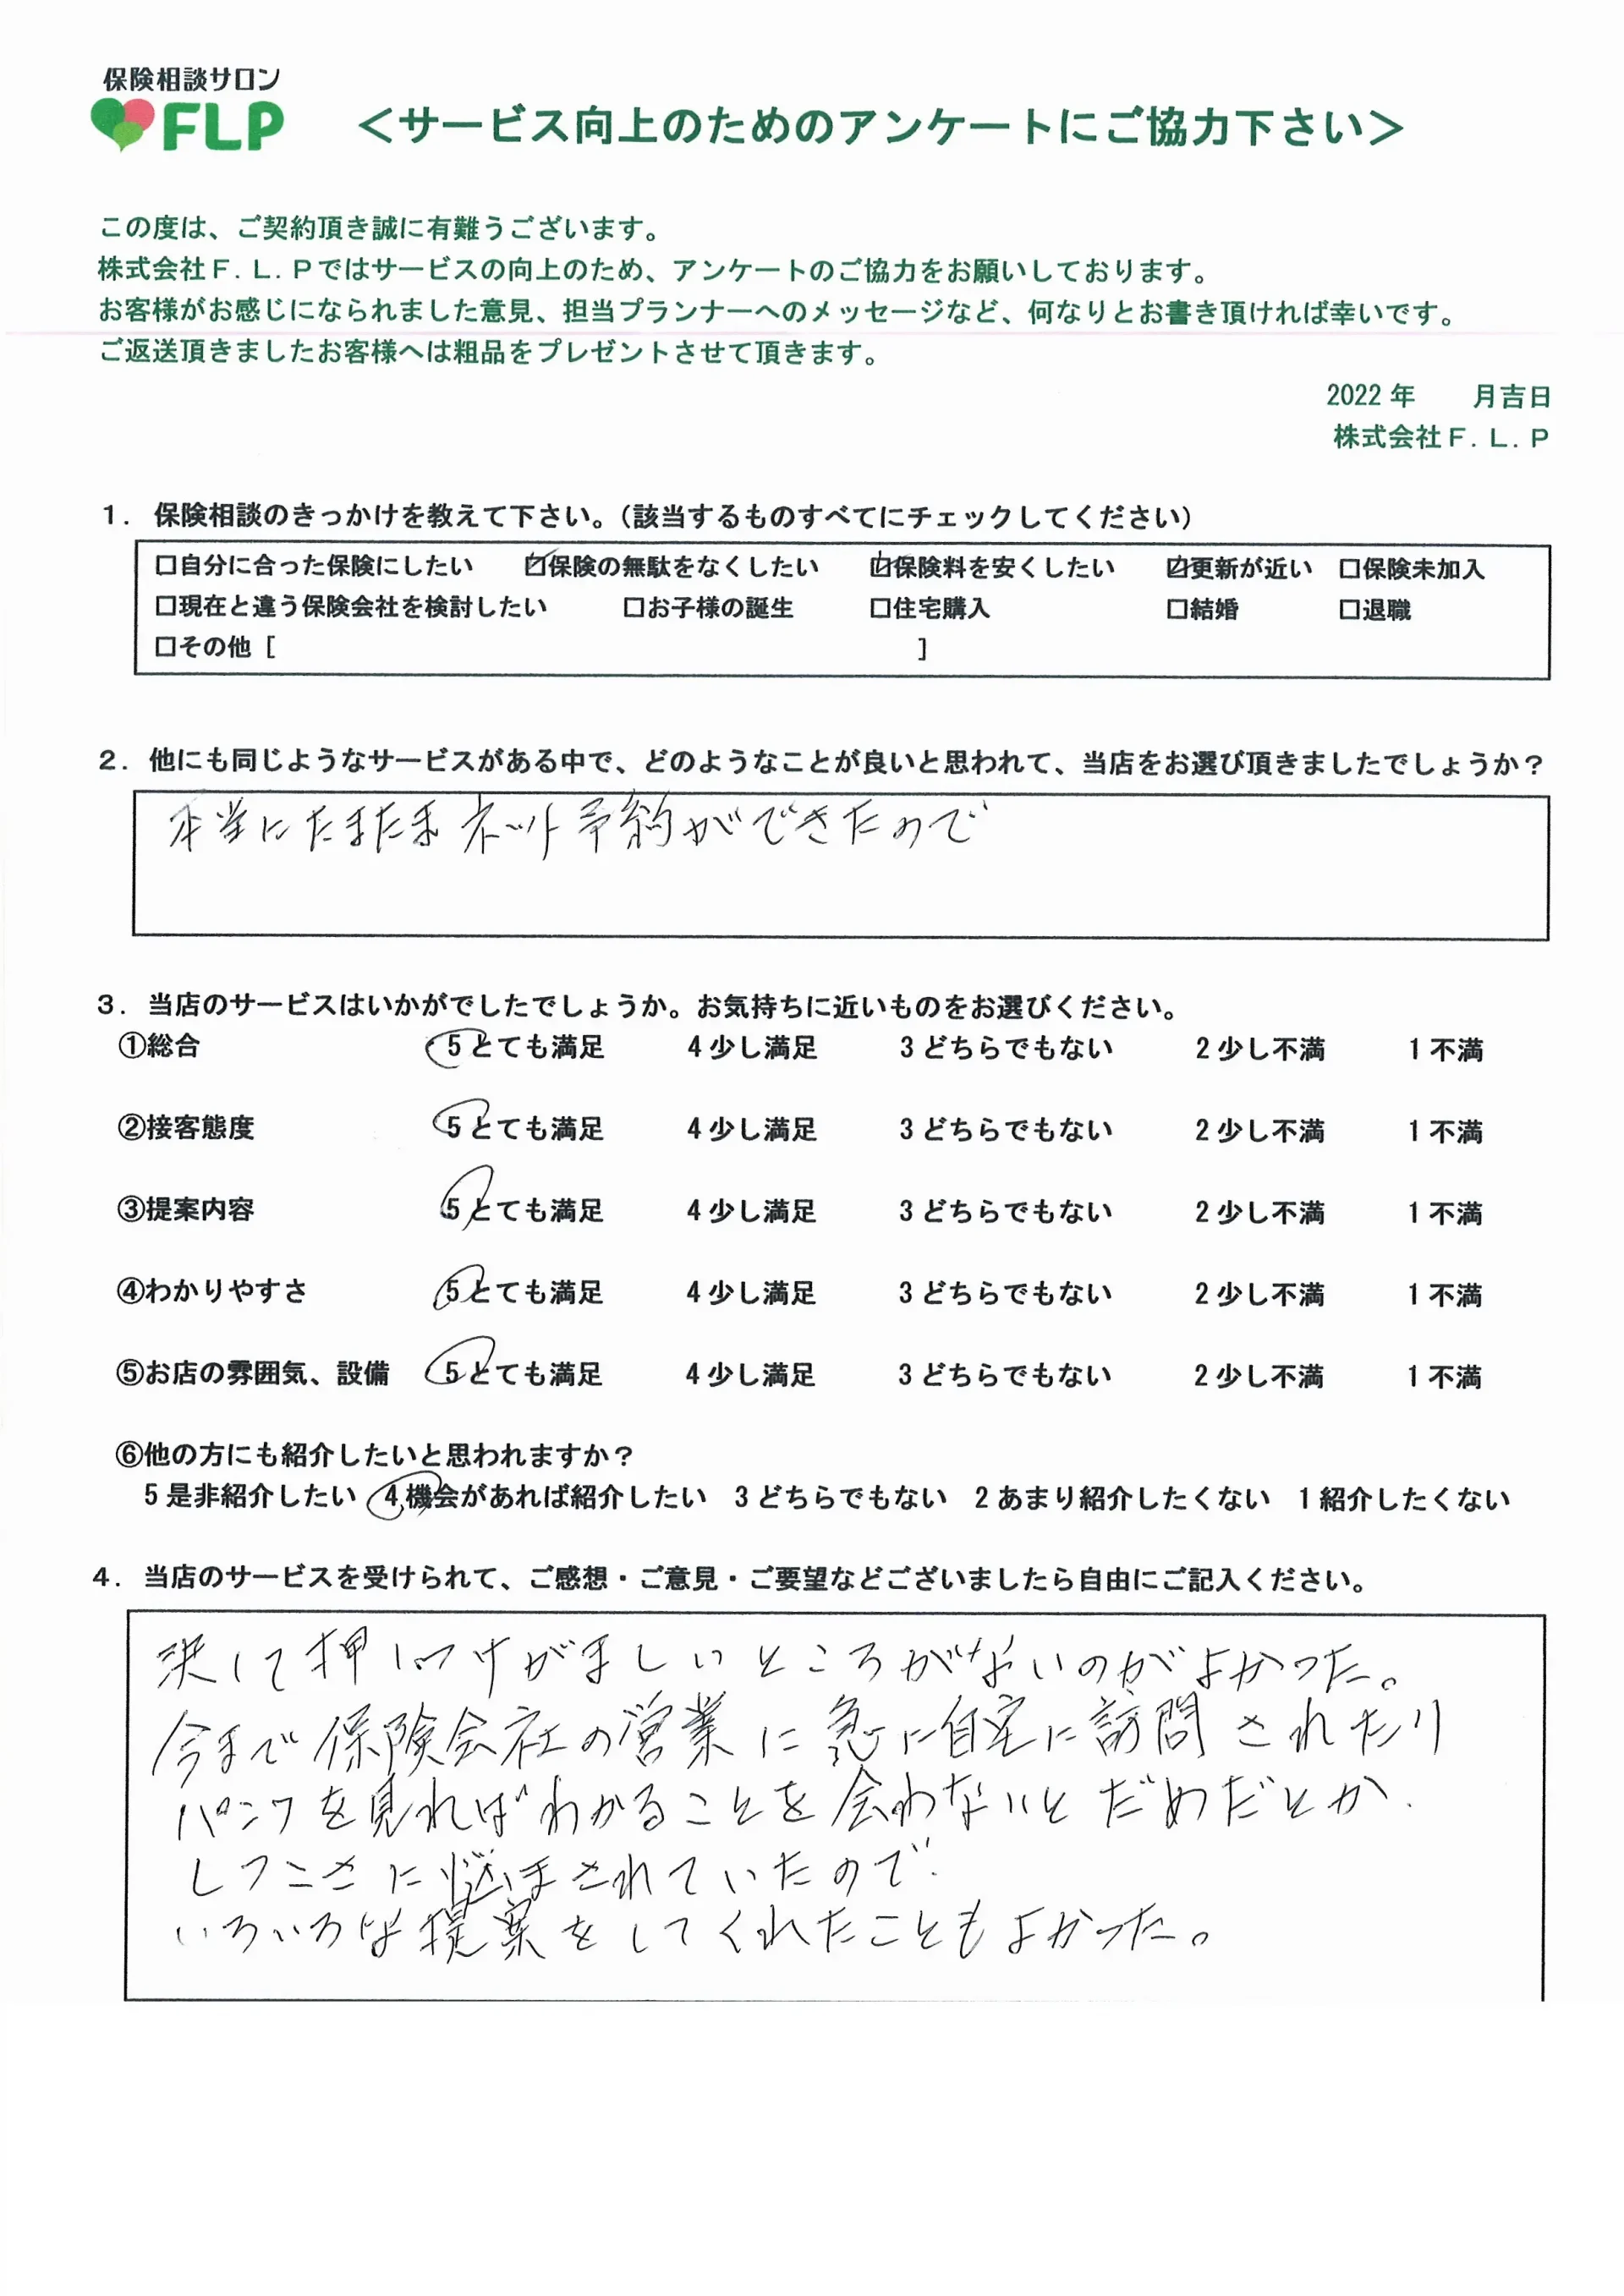 保険相談サロン
FLP
＜サービス向上のためのアンケートにご協力下さい＞
この度は、ご契約頂き誠に有難うございます。
株式会社Ｆ．Ｌ．Ｐではサービスの向上のため、アンケートのご協力をお願いしております。
お客様がお感じになられました意見、担当プランナーへのメッセージなど、何なりとお書き頂ければ幸いです。
ご返送頂きましたお客様へは粗品をプレゼントさせて頂きます。
2022 年　　月吉日
株式会社Ｆ．Ｌ．Ｐ
１．保険相談のきっかけを教えて下さい。（該当するものすべてにチェックしてください）
□自分に合った保険にしたい　☑保険の無駄をなくしたい　☑保険料を安くしたい　☑更新が近い　□保険未加入
□現在と違う保険会社を検討したい　□お子様の誕生　□住宅購入　□結婚　□退職
□その他［　　　］
２．他にも同じようなサービスがある中で、どのようなことが良いと思われて、当店をお選び頂きましたでしょうか？
本当にたまたまネット予約ができたので
３．当店のサービスはいかがでしたでしょうか。お気持ちに近いものをお選びください。
①総合　5 とても満足　4 少し満足　3 どちらでもない　2 少し不満　1 不満
②接客態度　5 とても満足　4 少し満足　3 どちらでもない　2 少し不満　1 不満
③提案内容　5 とても満足　4 少し満足　3 どちらでもない　2 少し不満　1 不満
④わかりやすさ　5 とても満足　4 少し満足　3 どちらでもない　2 少し不満　1 不満
⑤お店の雰囲気、設備　5 とても満足　4 少し満足　3 どちらでもない　2 少し不満　1 不満
⑥他の方にも紹介したいと思われますか？
5 是非紹介したい　4 機会があれば紹介したい　3 どちらでもない　2 あまり紹介したくない　1 紹介したくない
４．当店のサービスを受けられて、ご感想・ご意見・ご要望などございましたら自由にご記入ください。
決して押しつけがましいところがないのがよかった。
今まで保険会社の営業に急に自宅に訪問されたり
パンフを見ればわかることを会わないとだめだとか、
しつこさに悩まされていたので、
いろいろな提案をしてくれたこともよかった。